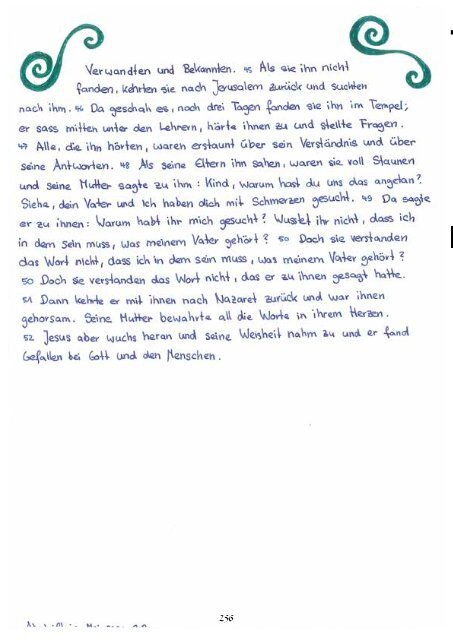 Verwandten und Bekannten. 45 Als sie ihn nicht
fanden, kehrten sie nach Jerusalem zurück und suchten
nach ihm. 46 Da geschah es, nach drei Tagen fanden sie ihn im Tempel;
er sass mitten unter den Lehrern, hörte ihnen zu und stellte Fragen.
47 Alle, die ihn hörten, waren erstaunt über sein Verständnis und über
seine Antworten. 48 Als seine Eltern ihn sahen, waren sie voll Staunen
und seine Mutter sagte zu ihm: Kind, warum hast du uns das angetan?
Siehe, dein Vater und ich haben dich mit Schmerzen gesucht. 49 Da sagte
er zu ihnen: Warum habt ihr mich gesucht? Wusstet ihr nicht, dass ich
in dem sein muss, was meinem Vater gehört? 50 Doch sie verstanden
das Wort nicht, dass ich in dem sein muss, was meinem Vater gehört?
50 Doch sie verstanden das Wort nicht, das er zu ihnen gesagt hatte.
51 Dann kehrte er mit ihnen nach Nazaret zurück und war ihnen
gehorsam. Seine Mutter bewahrte all die Worte in ihrem Herzen.
52 Jesus aber wuchs heran und seine Weisheit nahm zu und er fand
Gefallen bei Gott und den Menschen.
256